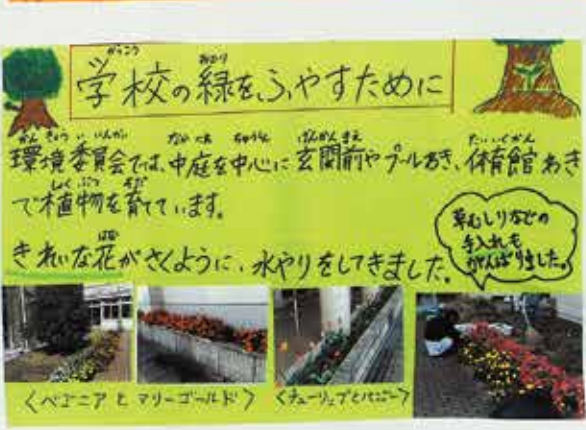 学校の緑をふやすために
環境委員会では、中庭を中心に玄関前やプールわき、体育館わき
で植物を育てています。
きれいな花がさくように、水やりをしてきました。
草むしりなどの
手入れも
がんばりました。
〈ベゴニアとマリーゴールド〉
〈チューリップとパンジー〉